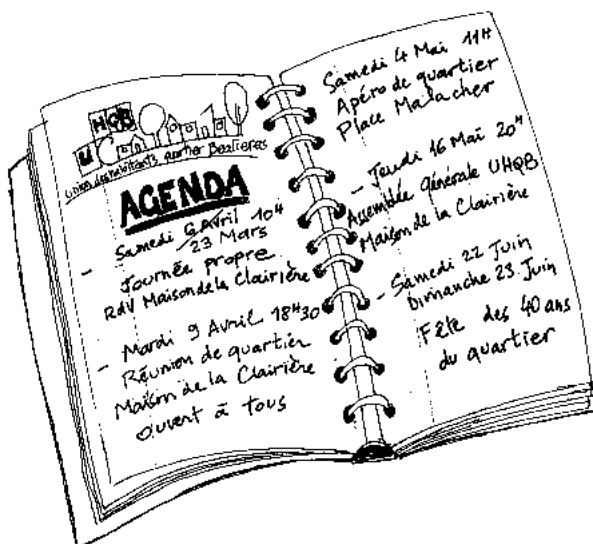 UHQB
Union des habitants quartier Bealieres
AGENDA
- Samedi 6 Avril 10H
23 Mars
Journée propre
RdV Maison de la Clairière
- Mardi 9 Avril 18H30
Réunion de quartier
Maison de la Clairière
ouvert à tous
Samedi 4 Mai 11H
Apéro de quartier
Place Malacher
- Jeudi 16 Mai 20H
Assemblée générale UHQB
Maison de la Clairière
- Samedi 22 Juin
Dimanche 23 Juin
Fête des 40 ans
du quartier